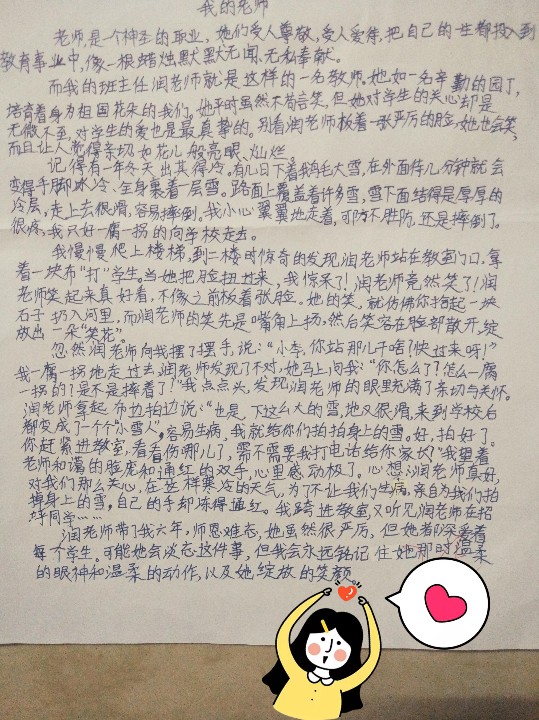 我的老师
老师,是一个神圣的职业,她们受人尊敬,受人爱待,把自己的一生都投入到
教育事业中,像一根蜡烛默默无闻、无私奉献。
而我的班主任润老师就是这样的一名教师,她如一名辛勤的园丁,
培育着身为祖国花朵的我们,她平时虽然不苟言笑,但她对学生的关心却是
无微不至,对学生的爱也是最真挚的。别看润老师板着一张严厉的脸,她也会笑,
而且让人觉得亲切,如花儿般亮眼、灿烂。
记得有一年冬天出其得冷,有几日下着鹅毛大雪,在外面待几分钟就会
变得手脚冰冷、全身裹着一层雪。路面上覆盖着许多雪,雪下面结得是厚厚的
冷层,走上去很滑,容易摔倒。我小心翼翼地走着,可防不胜防,还是摔倒了。
很疼,我只好一腐一拐的向学校走去。
我慢慢爬上楼梯,到一楼时惊奇的发现润老师站在教室门口,拿
着一块布"打"学生。当她把脸扭过来,我惊呆了!润老师竟然笑了!润
老师笑起来真好看,不像之前板着张脸。她的笑,就仿佛你捂起一块
石子扔入河里,而润老师的笑先是嘴角上扬,然后笑容在脸部散开,绽
放出一朵"笑花"。
忽然润老师向我摆了摆手,说:"小李,你站那儿干啥?快过来呀!"
我一腐一拐地走过去,润老师发现了不对,她马上问我:"你怎么了?怎么一腐
一拐的?是不是摔着了?"我点点头,发现润老师的眼里充满了亲切与关怀。
润老师拿起布边拍边说:"也是,下这么大的雪,地又很滑,来到学校后
都变成了一个个"小雪人",容易生病,我就给你们拍拍身上的雪。好,拍好了。
你赶紧进教室,看看伤哪儿了,需不需要我打电话给你家长?"我望着
老师和蔼的脸庞和通红的双手,心里感动极了。心想:润老师真好,
对我们那么关心,在这样寒冷的天气,为了不让我们生病,亲自为我们拍
掉身上的雪,自己的手却冻得通红。我跨进教室,又听见润老师在招
呼同学……
润老师带了我六年,师恩难忘,她虽然很严厉,但她都深爱着
每个学生。可能她会淡忘这件事,但我会永远铭记住她那时温柔
的眼神和温柔的动作,以及她绽放的笑颜。